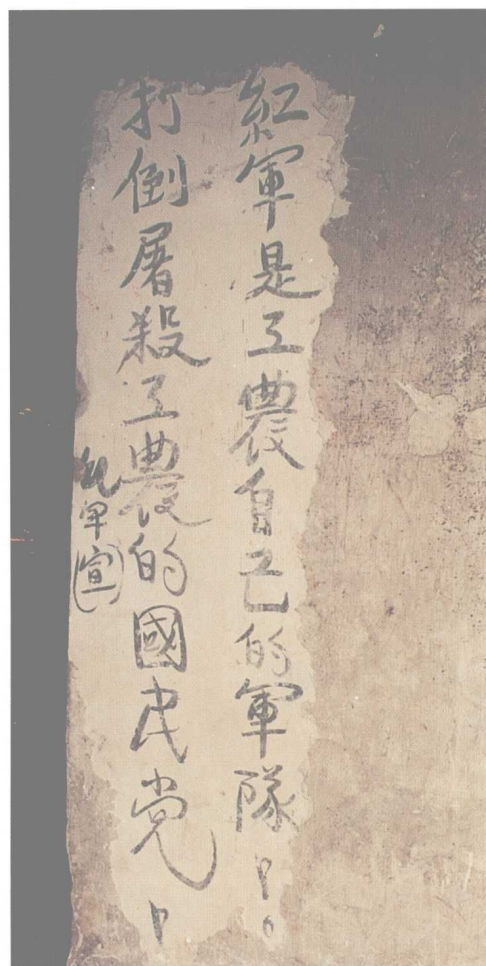 紅軍是工農自己的軍隊！。
打倒屠殺工農的國民党！
紅軍(宣)